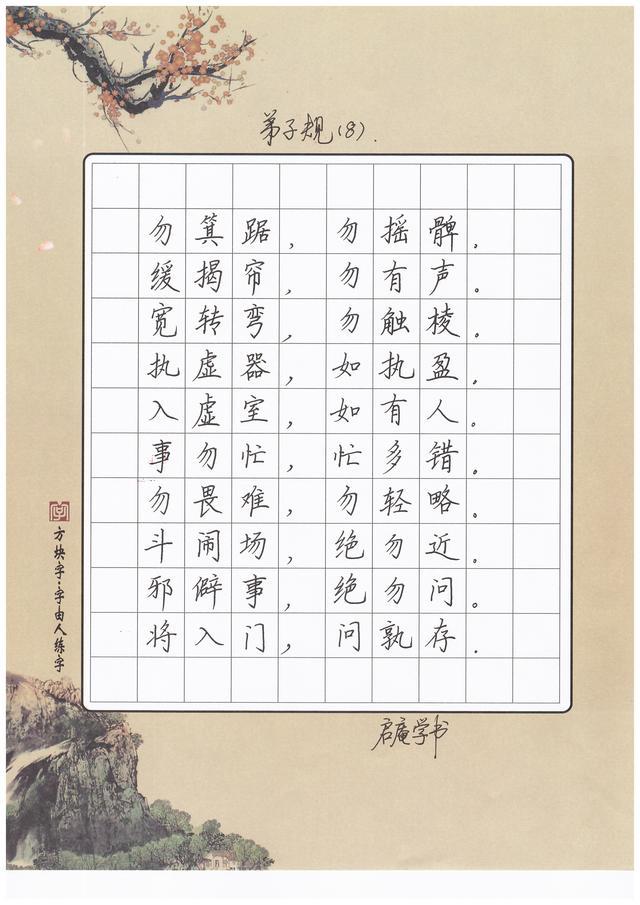 弟子规(8).
勿箕踞,勿摇髀.
缓揭帘,勿有声。
宽转弯,勿触棱。
执虚器,如执盈.
入虚室,如有人。
事勿忙,忙多错。
勿畏难,勿轻略。
斗闹场,绝勿近.
邪僻事,绝勿问。
将入门,问孰存.
方块字·字由人练字
启庵学书